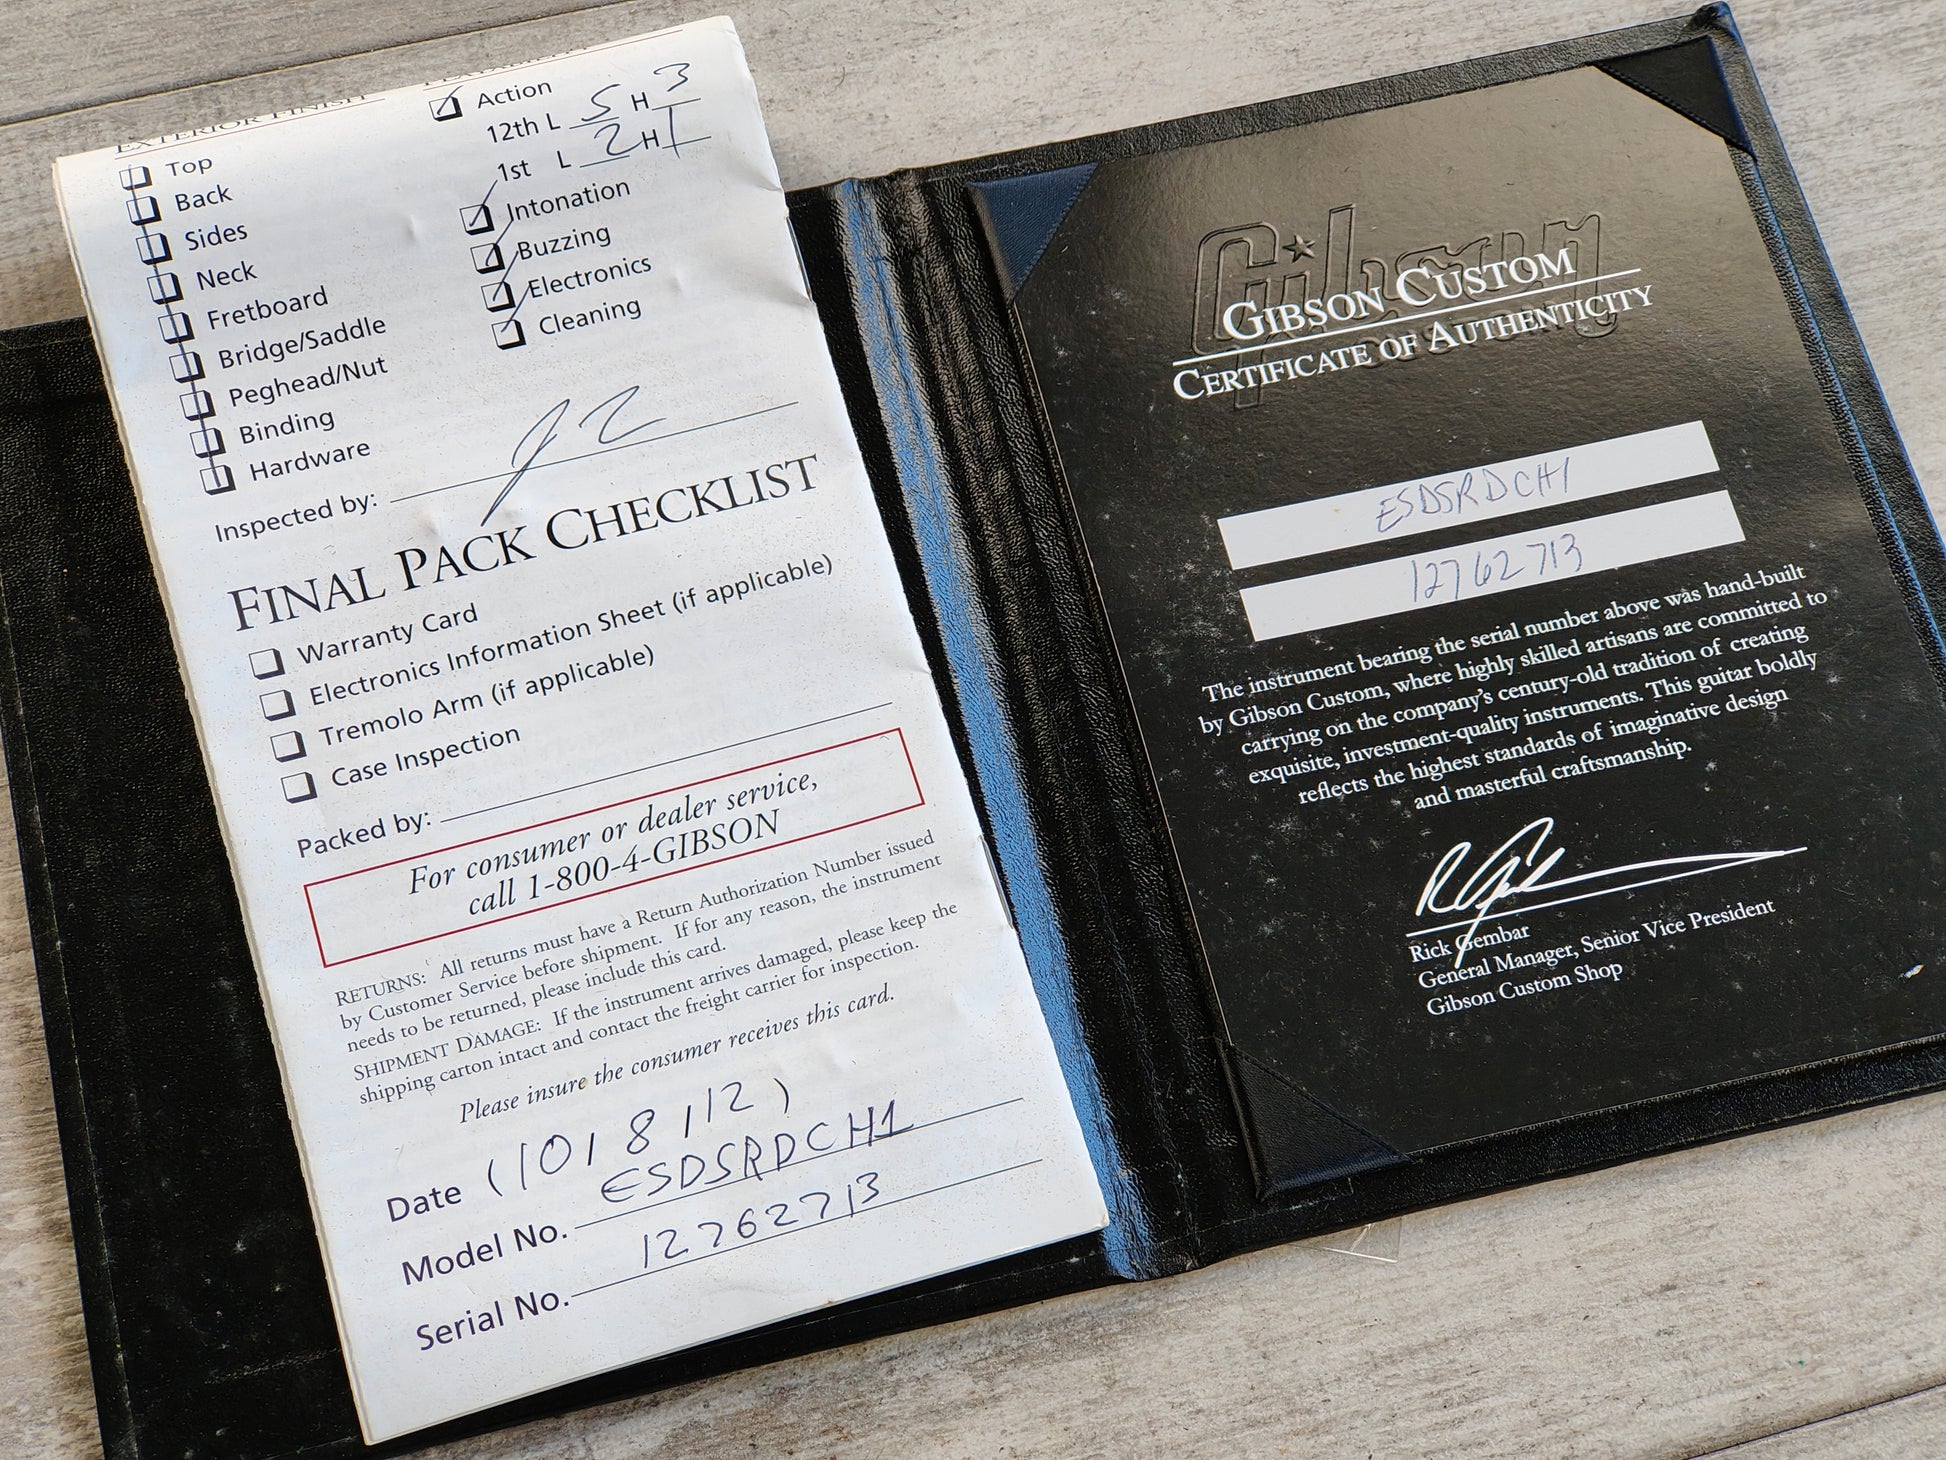 EXTERIOR FINISH
Top
Back
Sides
Neck
Fretboard
Bridge/Saddle
Peghead/Nut
Binding
Hardware
PLAYABILITY
Action
12th L 5 H 3
1st L 2 H 1
Intonation
Buzzing
Electronics
Cleaning
Inspected by:
FINAL PACK CHECKLIST
Warranty Card
Electronics Information Sheet (if applicable)
Tremolo Arm (if applicable)
Case Inspection
Packed by:
For consumer or dealer service,
call 1-800-4-GIBSON
RETURNS: All returns must have a Return Authorization Number issued
by Customer Service before shipment. If for any reason, the instrument
needs to be returned, please include this card.
SHIPMENT DAMAGE: If the instrument arrives damaged, please keep the
shipping carton intact and contact the freight carrier for inspection.
Please insure the consumer receives this card.
Date (10/8/12)
Model No. ESDSRDCH1
Serial No. 12762713
Gibson
GIBSON CUSTOM
CERTIFICATE OF AUTHENTICITY
ESDSRDCH1
12762713
The instrument bearing the serial number above was hand-built
by Gibson Custom, where highly skilled artisans are committed to
carrying on the company's century-old tradition of creating
exquisite, investment-quality instruments. This guitar boldly
reflects the highest standards of imaginative design
and masterful craftsmanship.
Rick Gembar
General Manager, Senior Vice President
Gibson Custom Shop